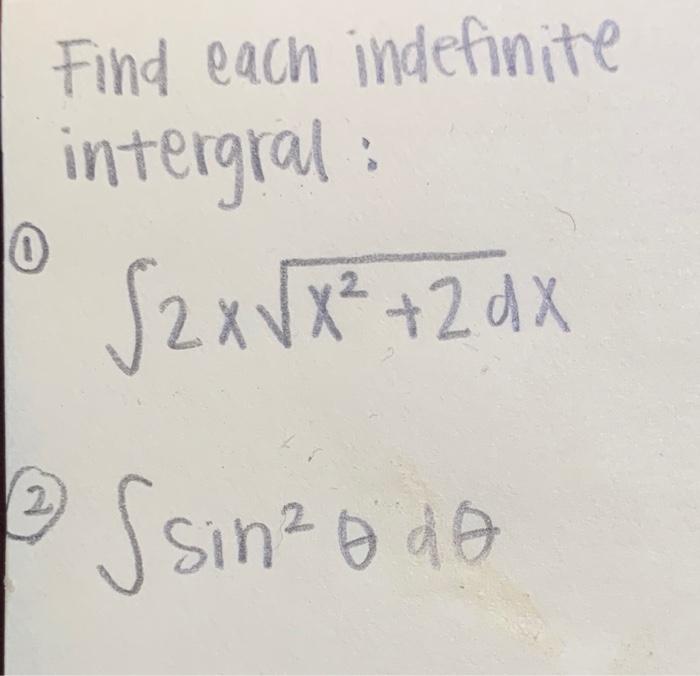 Find each indefinite
intergral :
① ∫2x√x² +2 dx
② ∫ sin² θ dθ